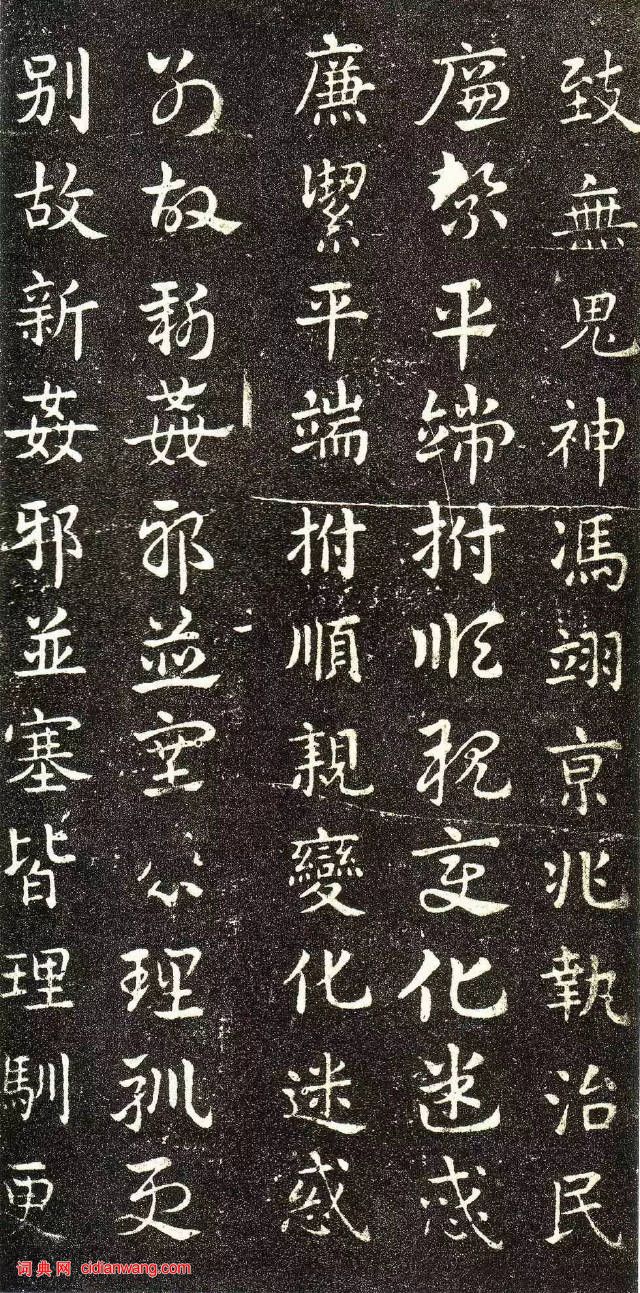 致無鬼神馮翊京兆執治民
廉絜平端拊順親變化迷惑
廉潔平端拊順親變化迷惑
別故新姦邪並塞皆理馴更
別故新姦邪並塞皆理馴更
词典网 cidianwang.com